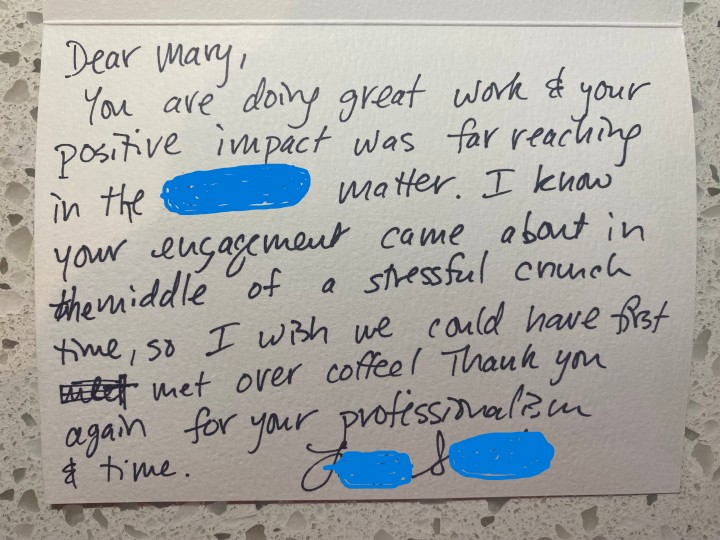 Dear Mary,
You are doing great work & your
positive impact was far reaching
in the matter. I know
your engagement came about in
the middle of a stressful crunch
time, so I wish we could have first
met over coffee! Thank you
again for your professionalism
& time.